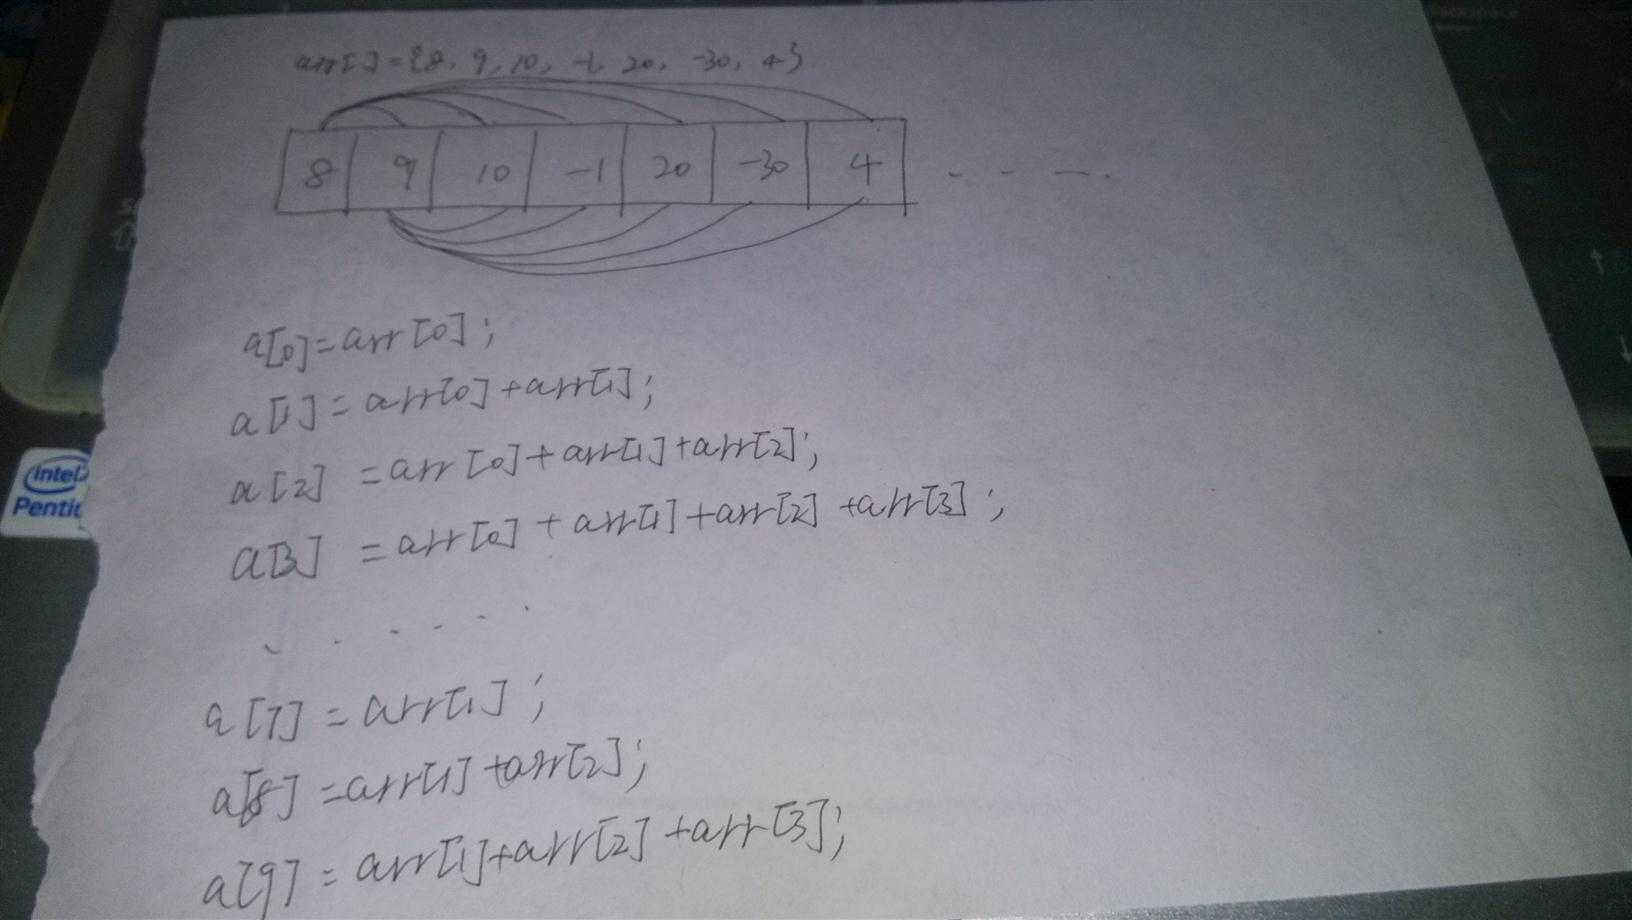 arr[] = {8, 9, 10, -1, 20, -30, 4}
8 9 10 -1 20 -30 4 - - - .
a[0]=arr[0];
a[1]=arr[0]+arr[1];
a[2] =arr[0]+arr[1]+arr[2];
a[3] =arr[0]+arr[1]+arr[2]+arr[3];
. . . . . .
a[7] =arr[1];
a[8] =arr[1]+arr[2];
a[9] =arr[1]+arr[2]+arr[3];
intel